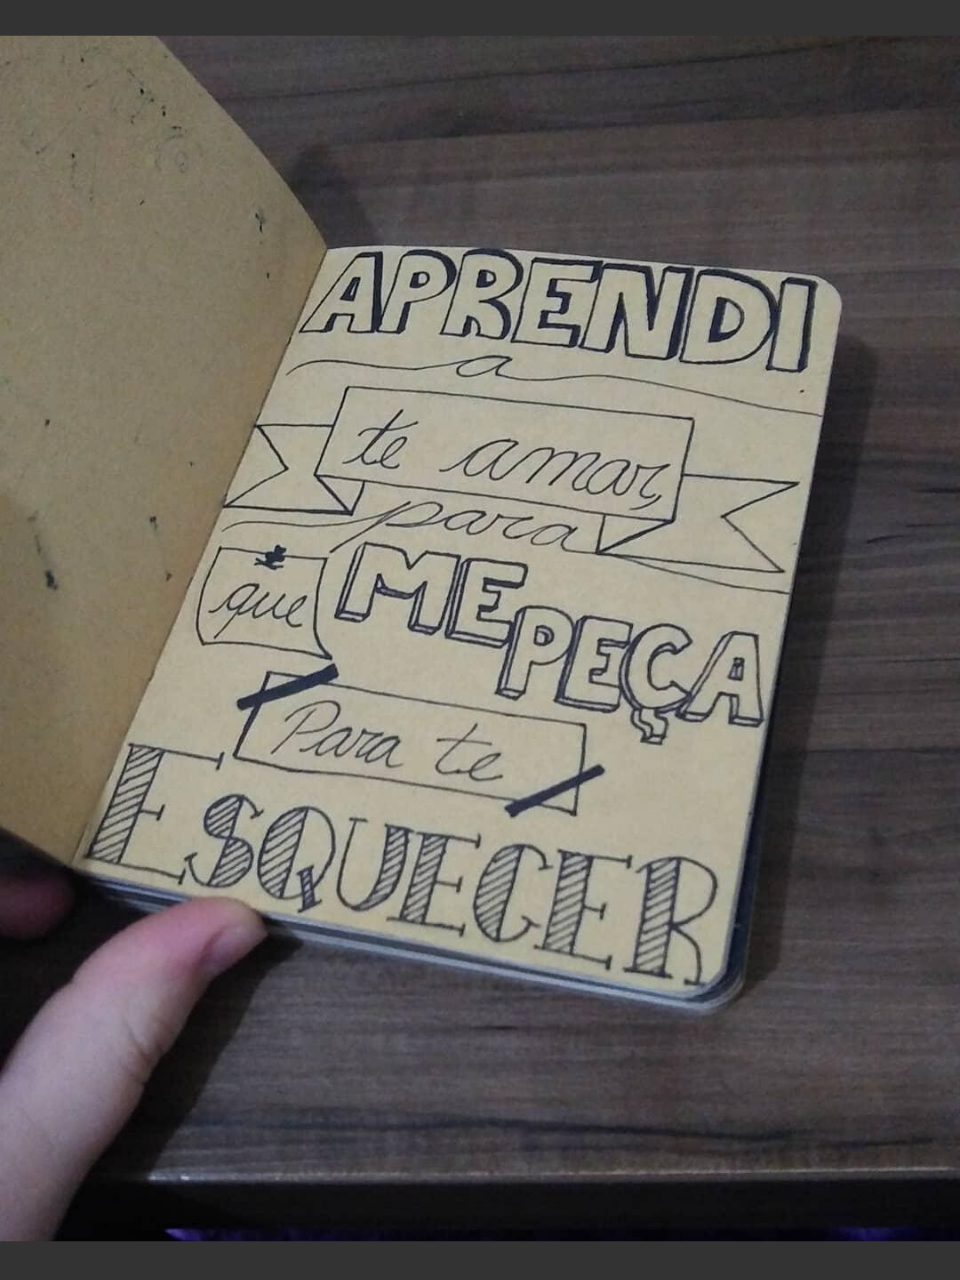 APRENDI
a
te amar,
para
que ME PEÇA
Para te
ESQUECER